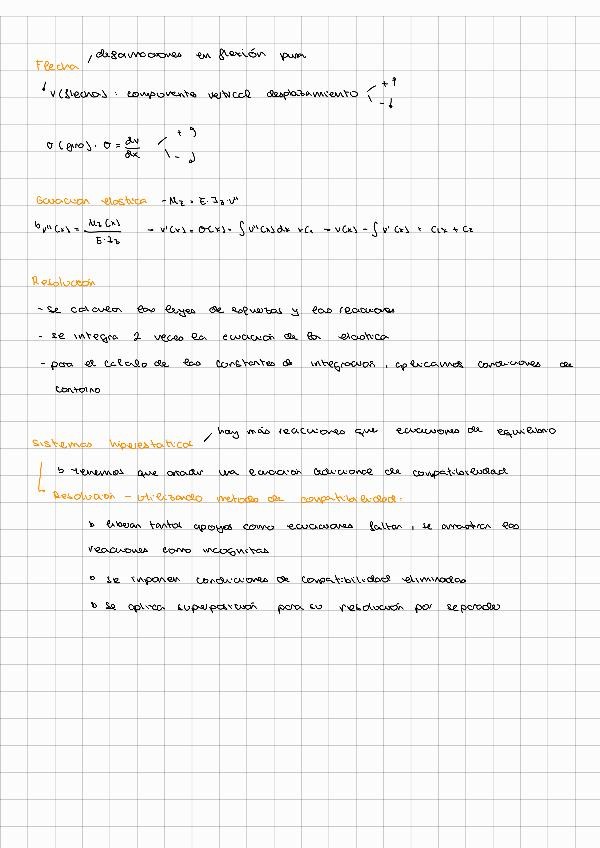 Flecha / deformaciones en flexión pura
↳ v (flecha) : componente vertical desplazamiento < + ↑ - ↓
θ (giro) · θ = dv/dx < + ↺ - ↻
Ecuacion elastica - Mz = E·Iz·v''
↳ v''(x) = Mz(x) / E·Iz → v'(x) = θ(x) = ∫ v''(x)dx + C1 → v(x) = ∫ v'(x) + C1x + C2
Resolución
- se calculan las leyes de esfuerzos y las reacciones
- se integra 2 veces la ecuación de la elastica
- para el calculo de las constantes de integracion, aplicamos condiciones de
contorno
Sistemas hiperestaticos / hay más reacciones que ecuaciones de equilibrio
↳ tenemos que añadir una ecuación adicional de compatibilidad
↳ Resolución - utilizando metodo de compatibilidad.
↳ liberan tantos apoyos como ecuaciones faltan, se las
reacciones como incognitas
↳ se imponen condiciones de compatibilidad eliminadas
↳ se aplica superposición para su resolución por separado